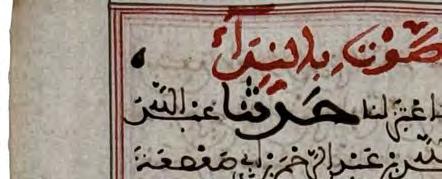 صوت بالنداء
اعتزلنا حدثنا عبد الله
الله بن عبد الرحمن بن أبي صعصعة